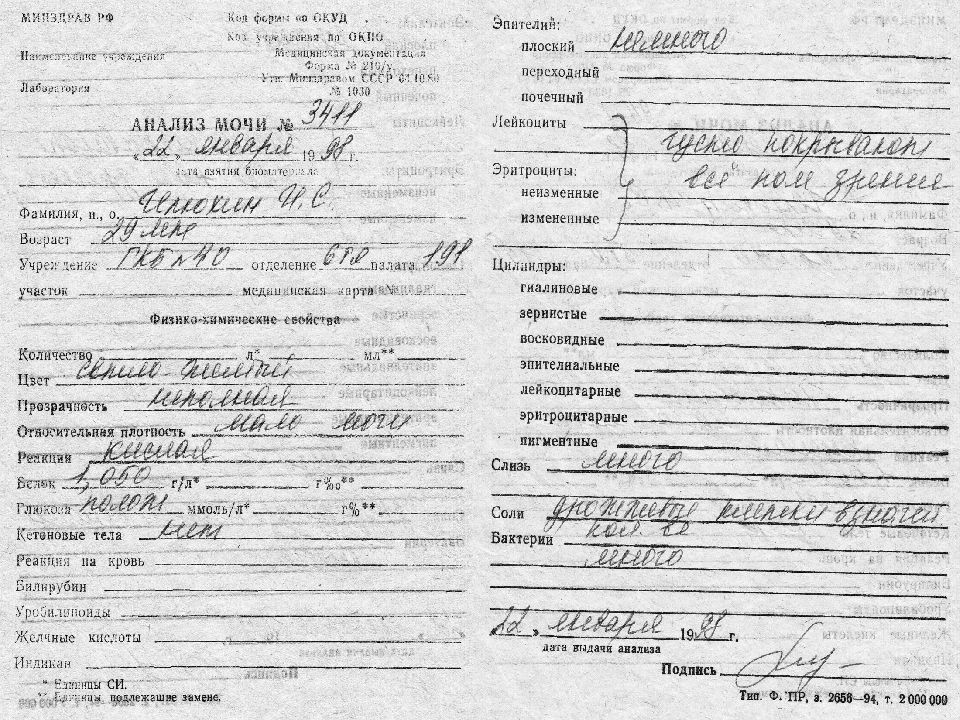 МИНЗДРАВ РФ
Код формы по ОКУД
Код учреждения по ОКПО
Медицинская документация
Форма № 210/у
Утв. Минздравом СССР 04.10.80
№ 1030
Наименование учреждения
Лаборатория
АНАЛИЗ МОЧИ № 3411
«22» января 1998 г.
дата взятия биоматериала
Фамилия, и., о. Илюхин И.С.
Возраст 29 лет
Учреждение ГКБ №40 отделение 6 палата 191
участок медицинская карта №
Физико-химические свойства
Количество л* мл**
Цвет желтый
Прозрачность неполная
Относительная плотность мало мочи
Реакция кислая
Белок 1,050 г/л* г%o**
Глюкоза ммоль/л* г%**
Кетоновые тела нет
Реакция на кровь
Билирубин
Уробилиноиды
Желчные кислоты
Индикан
* Единицы СИ.
** Единицы, подлежащие замене.
Эпителий:
плоский немного
переходный
почечный
Лейкоциты густо покрывают
Эритроциты: всё поле зрения
неизменные
измененные
Цилиндры:
гиалиновые
зернистые
восковидные
эпителиальные
лейкоцитарные
эритроцитарные
пигментные
Слизь много
Соли дрожжевые клетки
Бактерии
много
22 » января 1998 г.
дата выдачи анализа
Подпись
Тип. Ф. ПР, з. 2656—94, т. 2 000 000